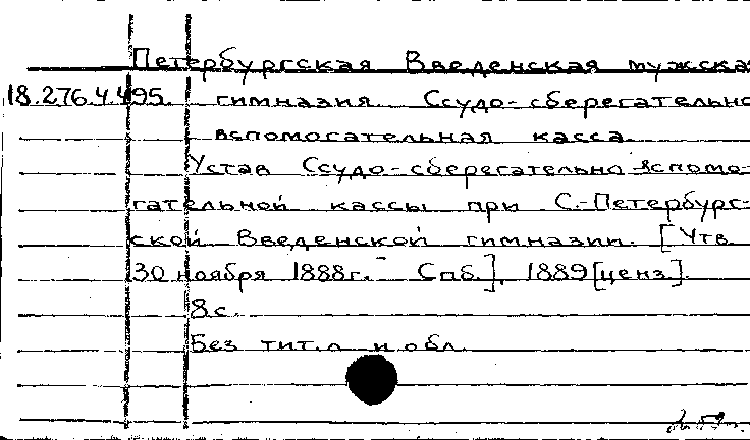 Петербургская Введенская мужска
18.276.4.495 гимназия Ссудо-сберегательно
вспомогательная касса.
Устав Ссудо-сберегательно-вспомо-
гательной кассы при С.-Петербург-
ской Введенской гимназии. [Утв.
30 ноября 1888г. Спб.], 1889[ценз].
8с.
Без тит.л и обл.